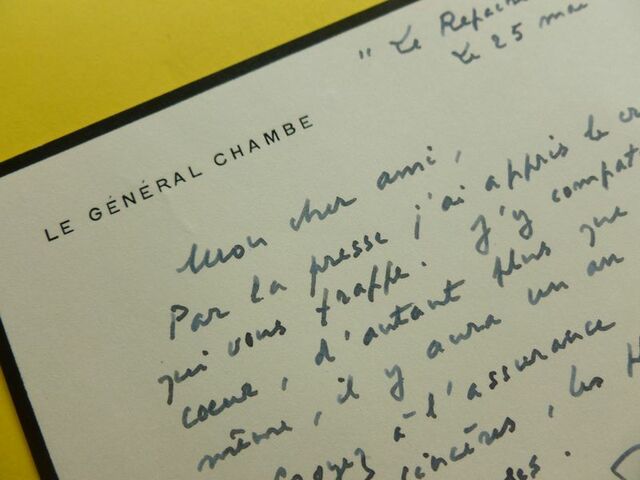 " Le Repaire
Le 25 mai
LE GÉNÉRAL CHAMBE
Mon cher ami,
Par la presse j'ai appris le
qui vous frappe. J'y
coeur, d'autant plus que
même, il y aura un an
Croyez à l'assurance
sincères, les